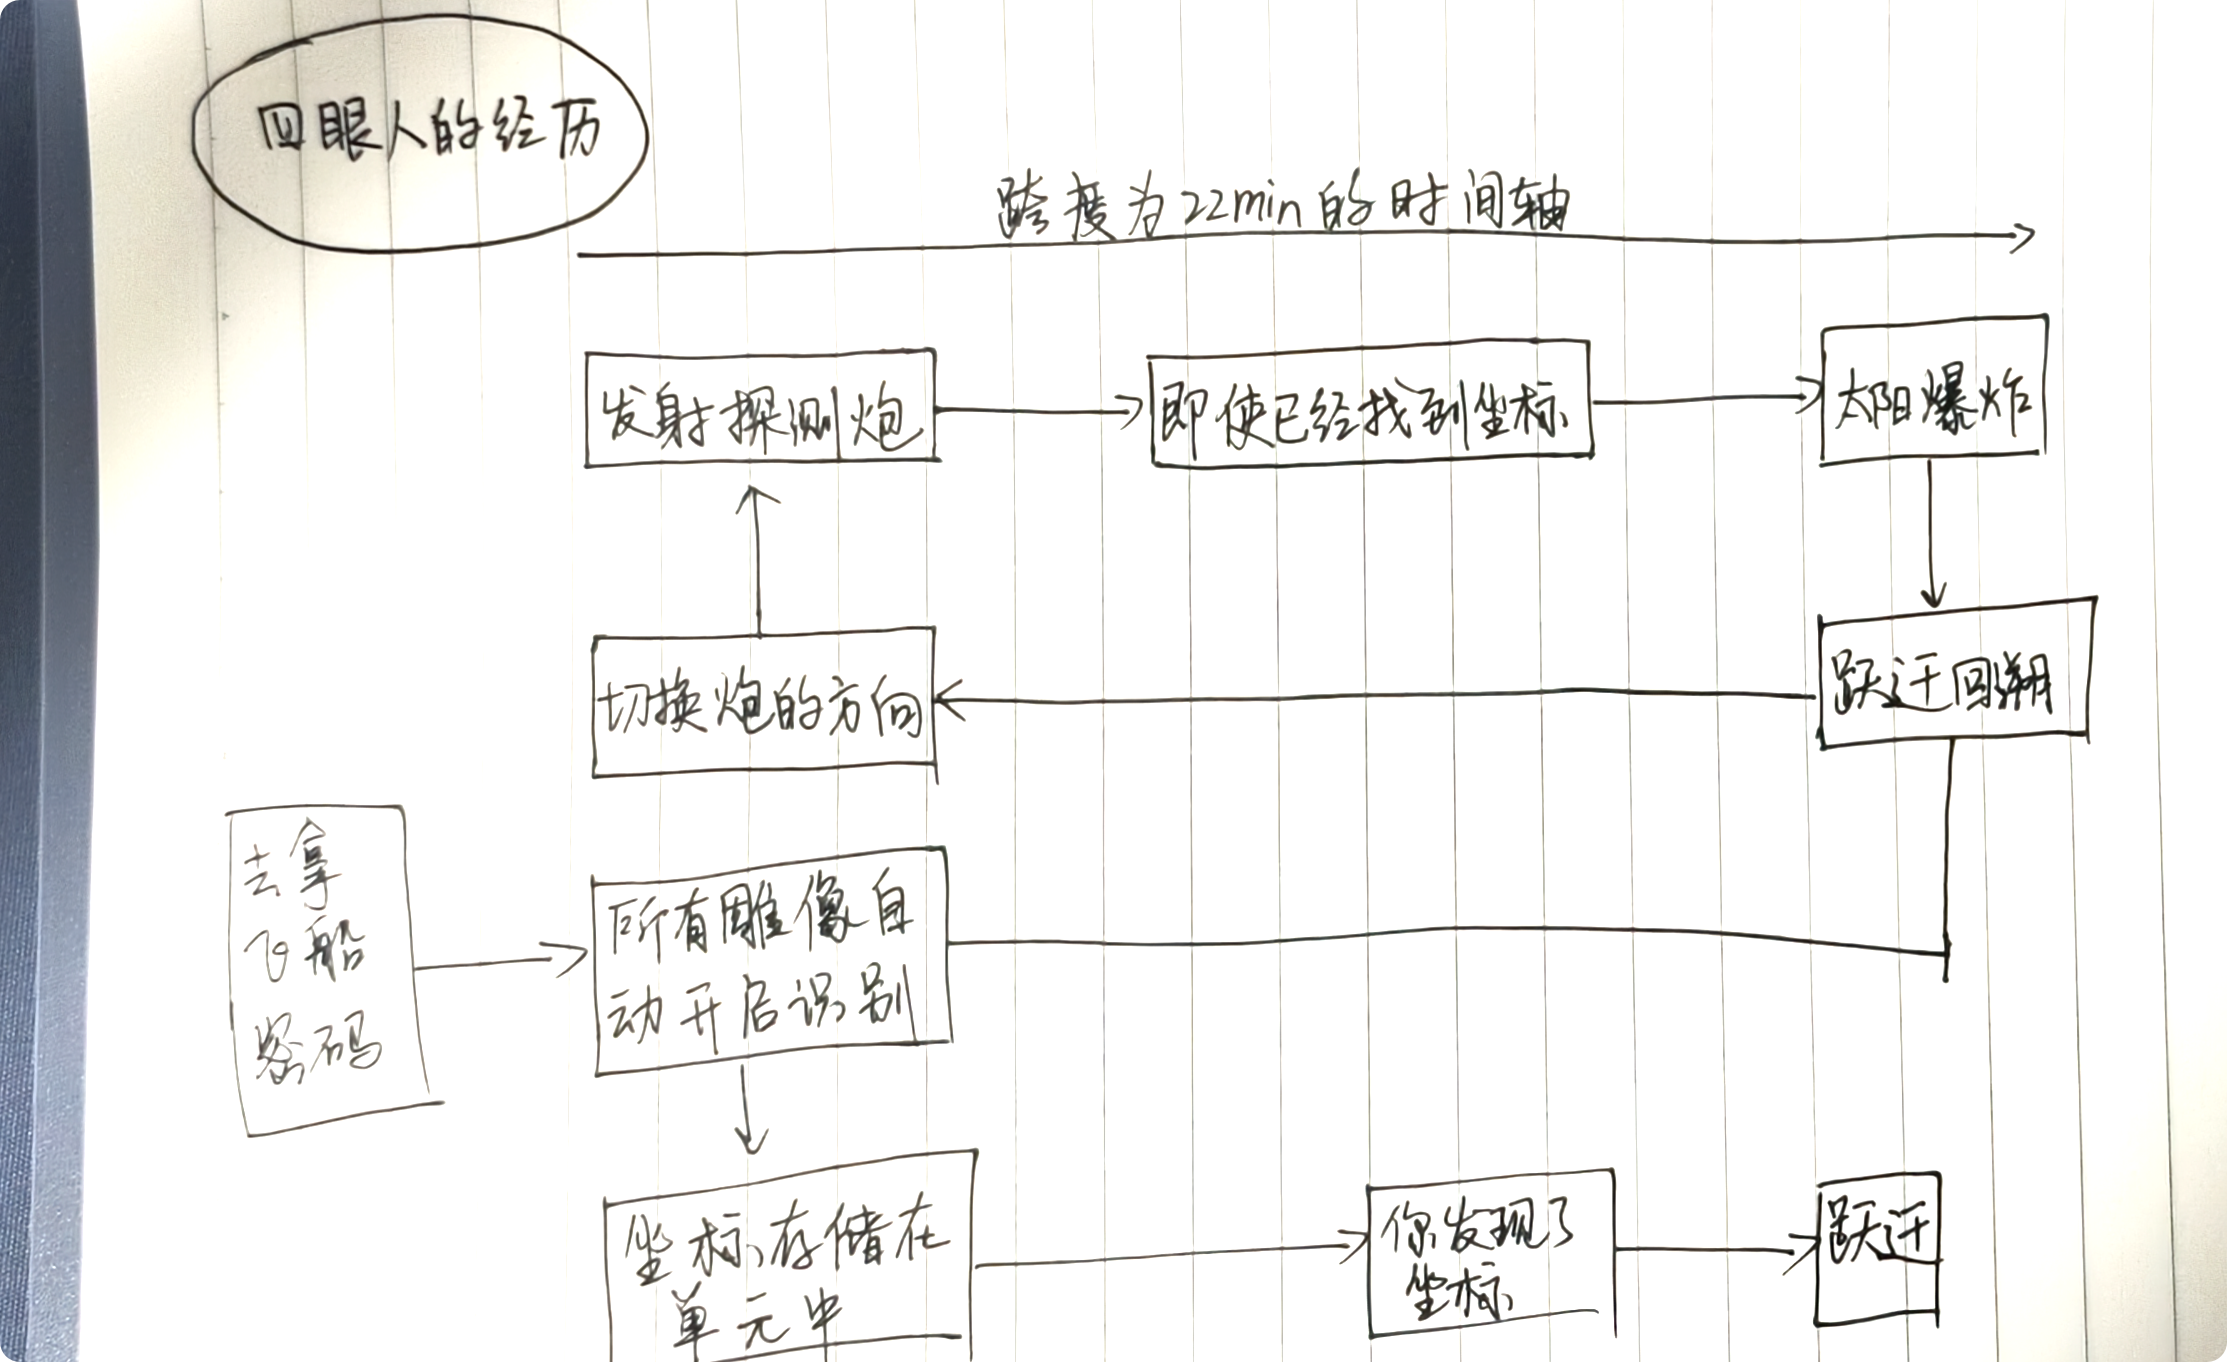 四眼人的经历
跨度为22min的时间轴
发射探测炮
即使已经找到坐标
太阳爆炸
切换炮的方向
跃迁回溯
去拿
飞船
密码
所有雕像自
动开启识别
坐标存储在
单元中
你发现了
坐标
跃迁